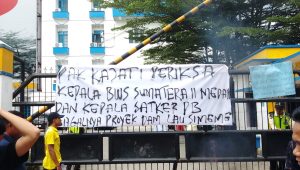 PAK KAJATI PERIKSA
KEPALA BWS SUMATERA II MEDAN
DAN KEPALA SATKER PB
GAGALNYA PROYEK DAM LAU SIMEME